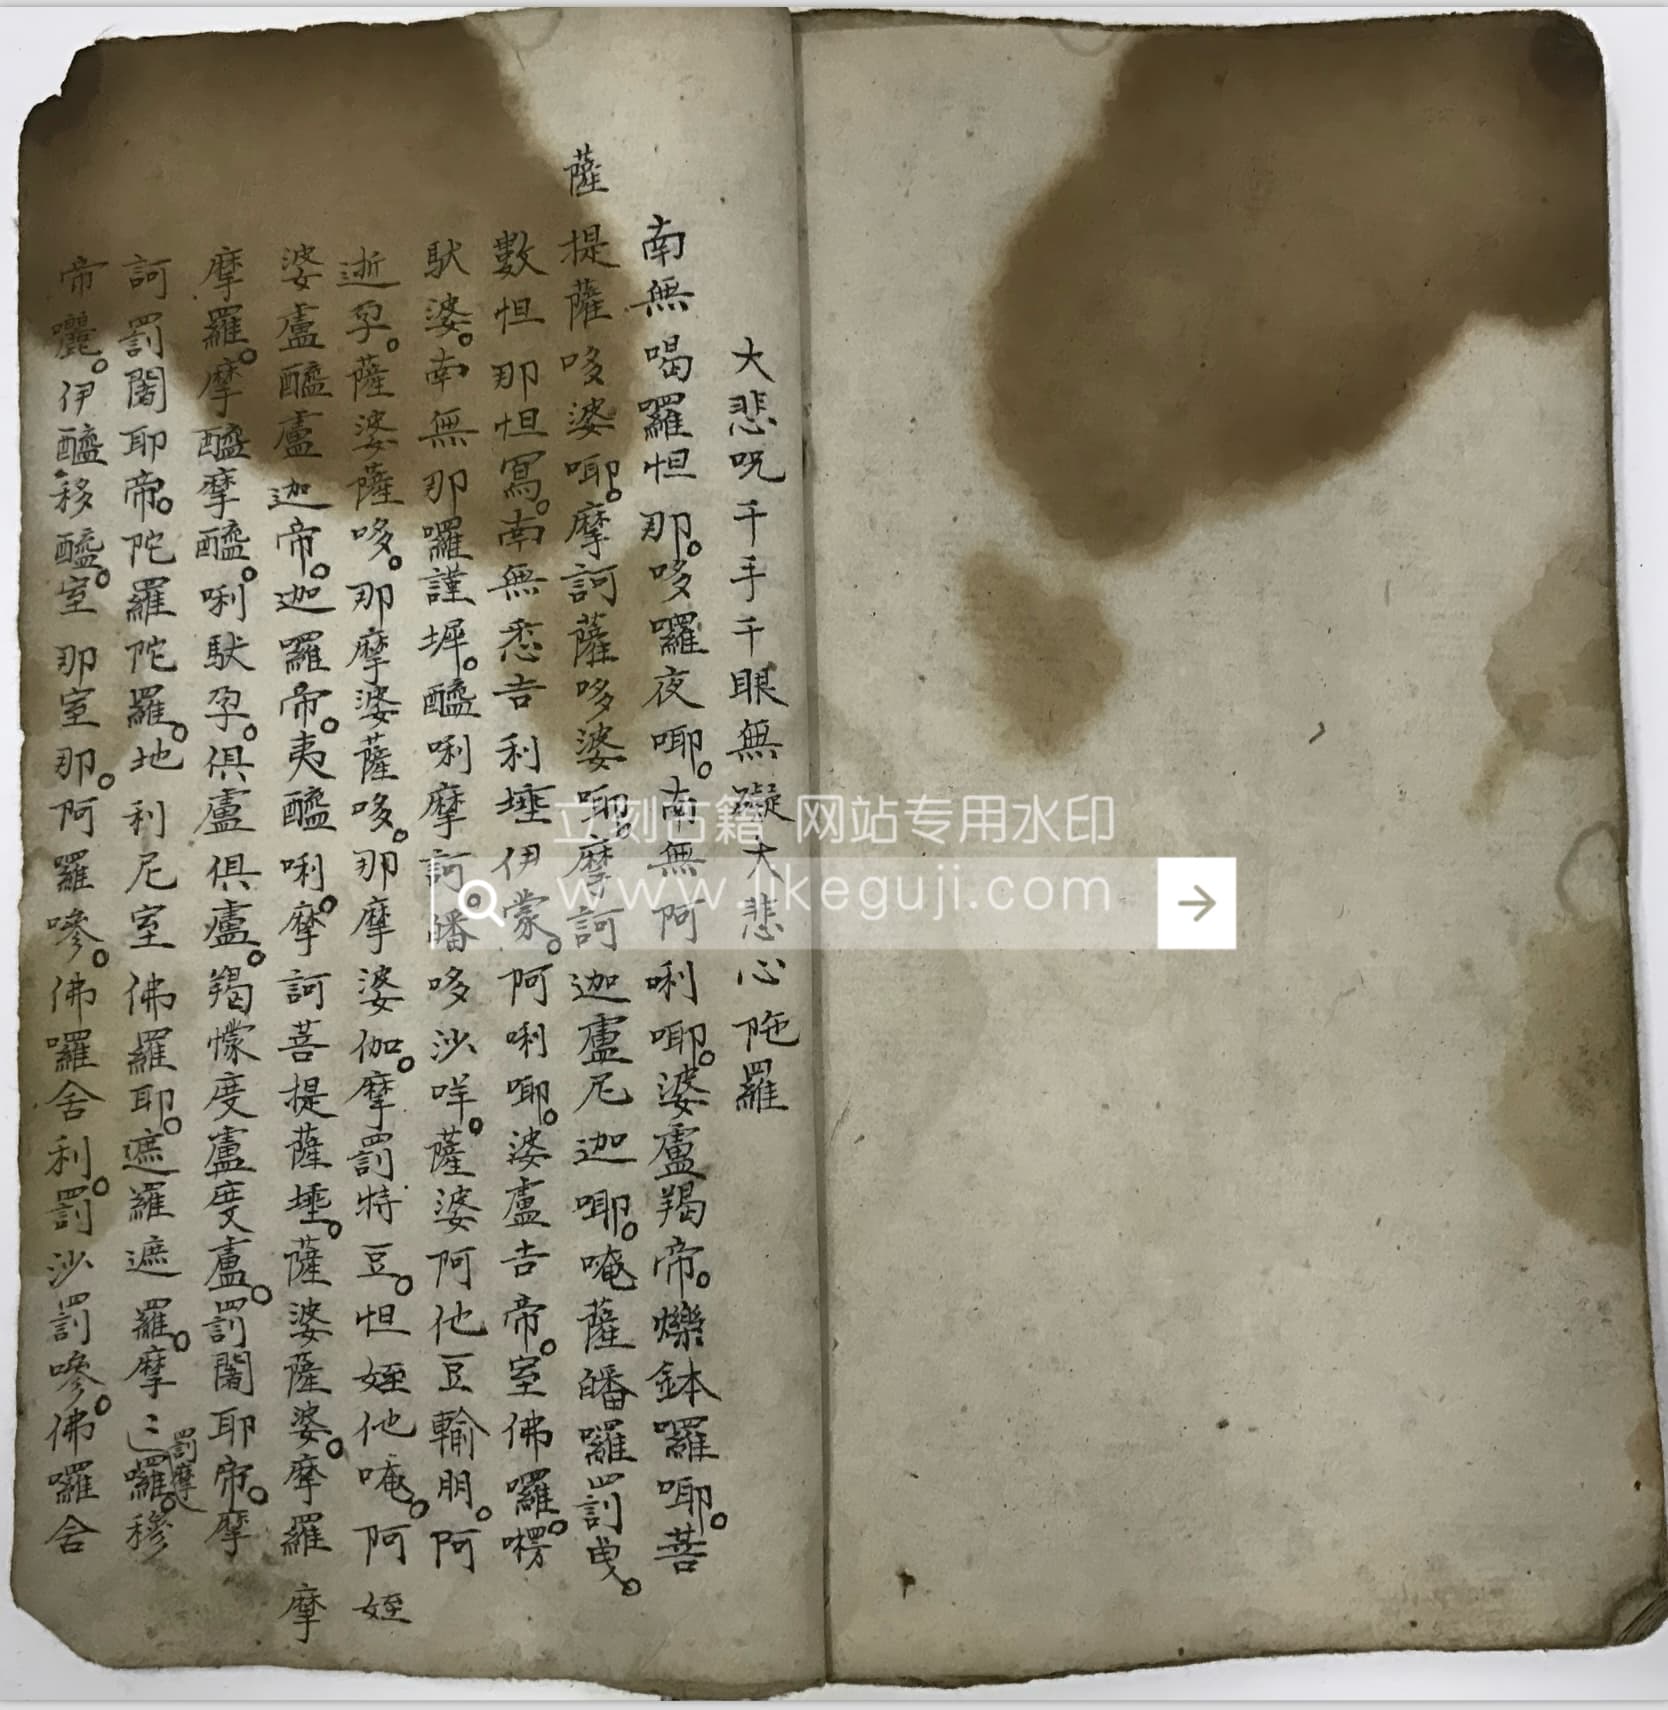 大悲呪千手千眼無礙大悲心陁羅
南無喝囉怛那。哆囉夜㖿。南無阿唎㖿。婆盧羯帝。爍鉢囉㖿。菩
薩
提薩哆婆㖿。摩訶薩哆婆㖿。摩訶迦盧尼迦㖿。唵薩皤囉罰曳。
數怛那怛寫。南無悉吉利埵伊蒙。阿唎㖿。婆盧吉帝。室佛囉。楞
馱婆。南無那囉謹墀。醯唎摩訶皤哆沙咩。薩婆阿他豆輸朋。阿
逝孕。薩婆薩哆。那摩婆薩哆。那摩婆伽。摩罰特豆。怛姪他唵。阿
姪
婆盧醯盧迦帝。迦羅帝。夷醯唎。摩訶菩提薩埵。薩婆薩婆。摩羅
摩
摩羅。摩醯摩醯。唎馱孕。俱盧俱盧。羯懞度盧度盧。罰闍耶帝。摩
訶罰闍耶帝。陀羅陀羅。地利尼室佛羅耶。遮羅遮羅。摩ミ囉。穆
罰摩
帝囇。伊醯移醯。室那室那。阿羅嘇。佛囉舍利。罰沙罰嘇。佛囉舍
立刻古籍 网站专用水印
www.jikeguji.com